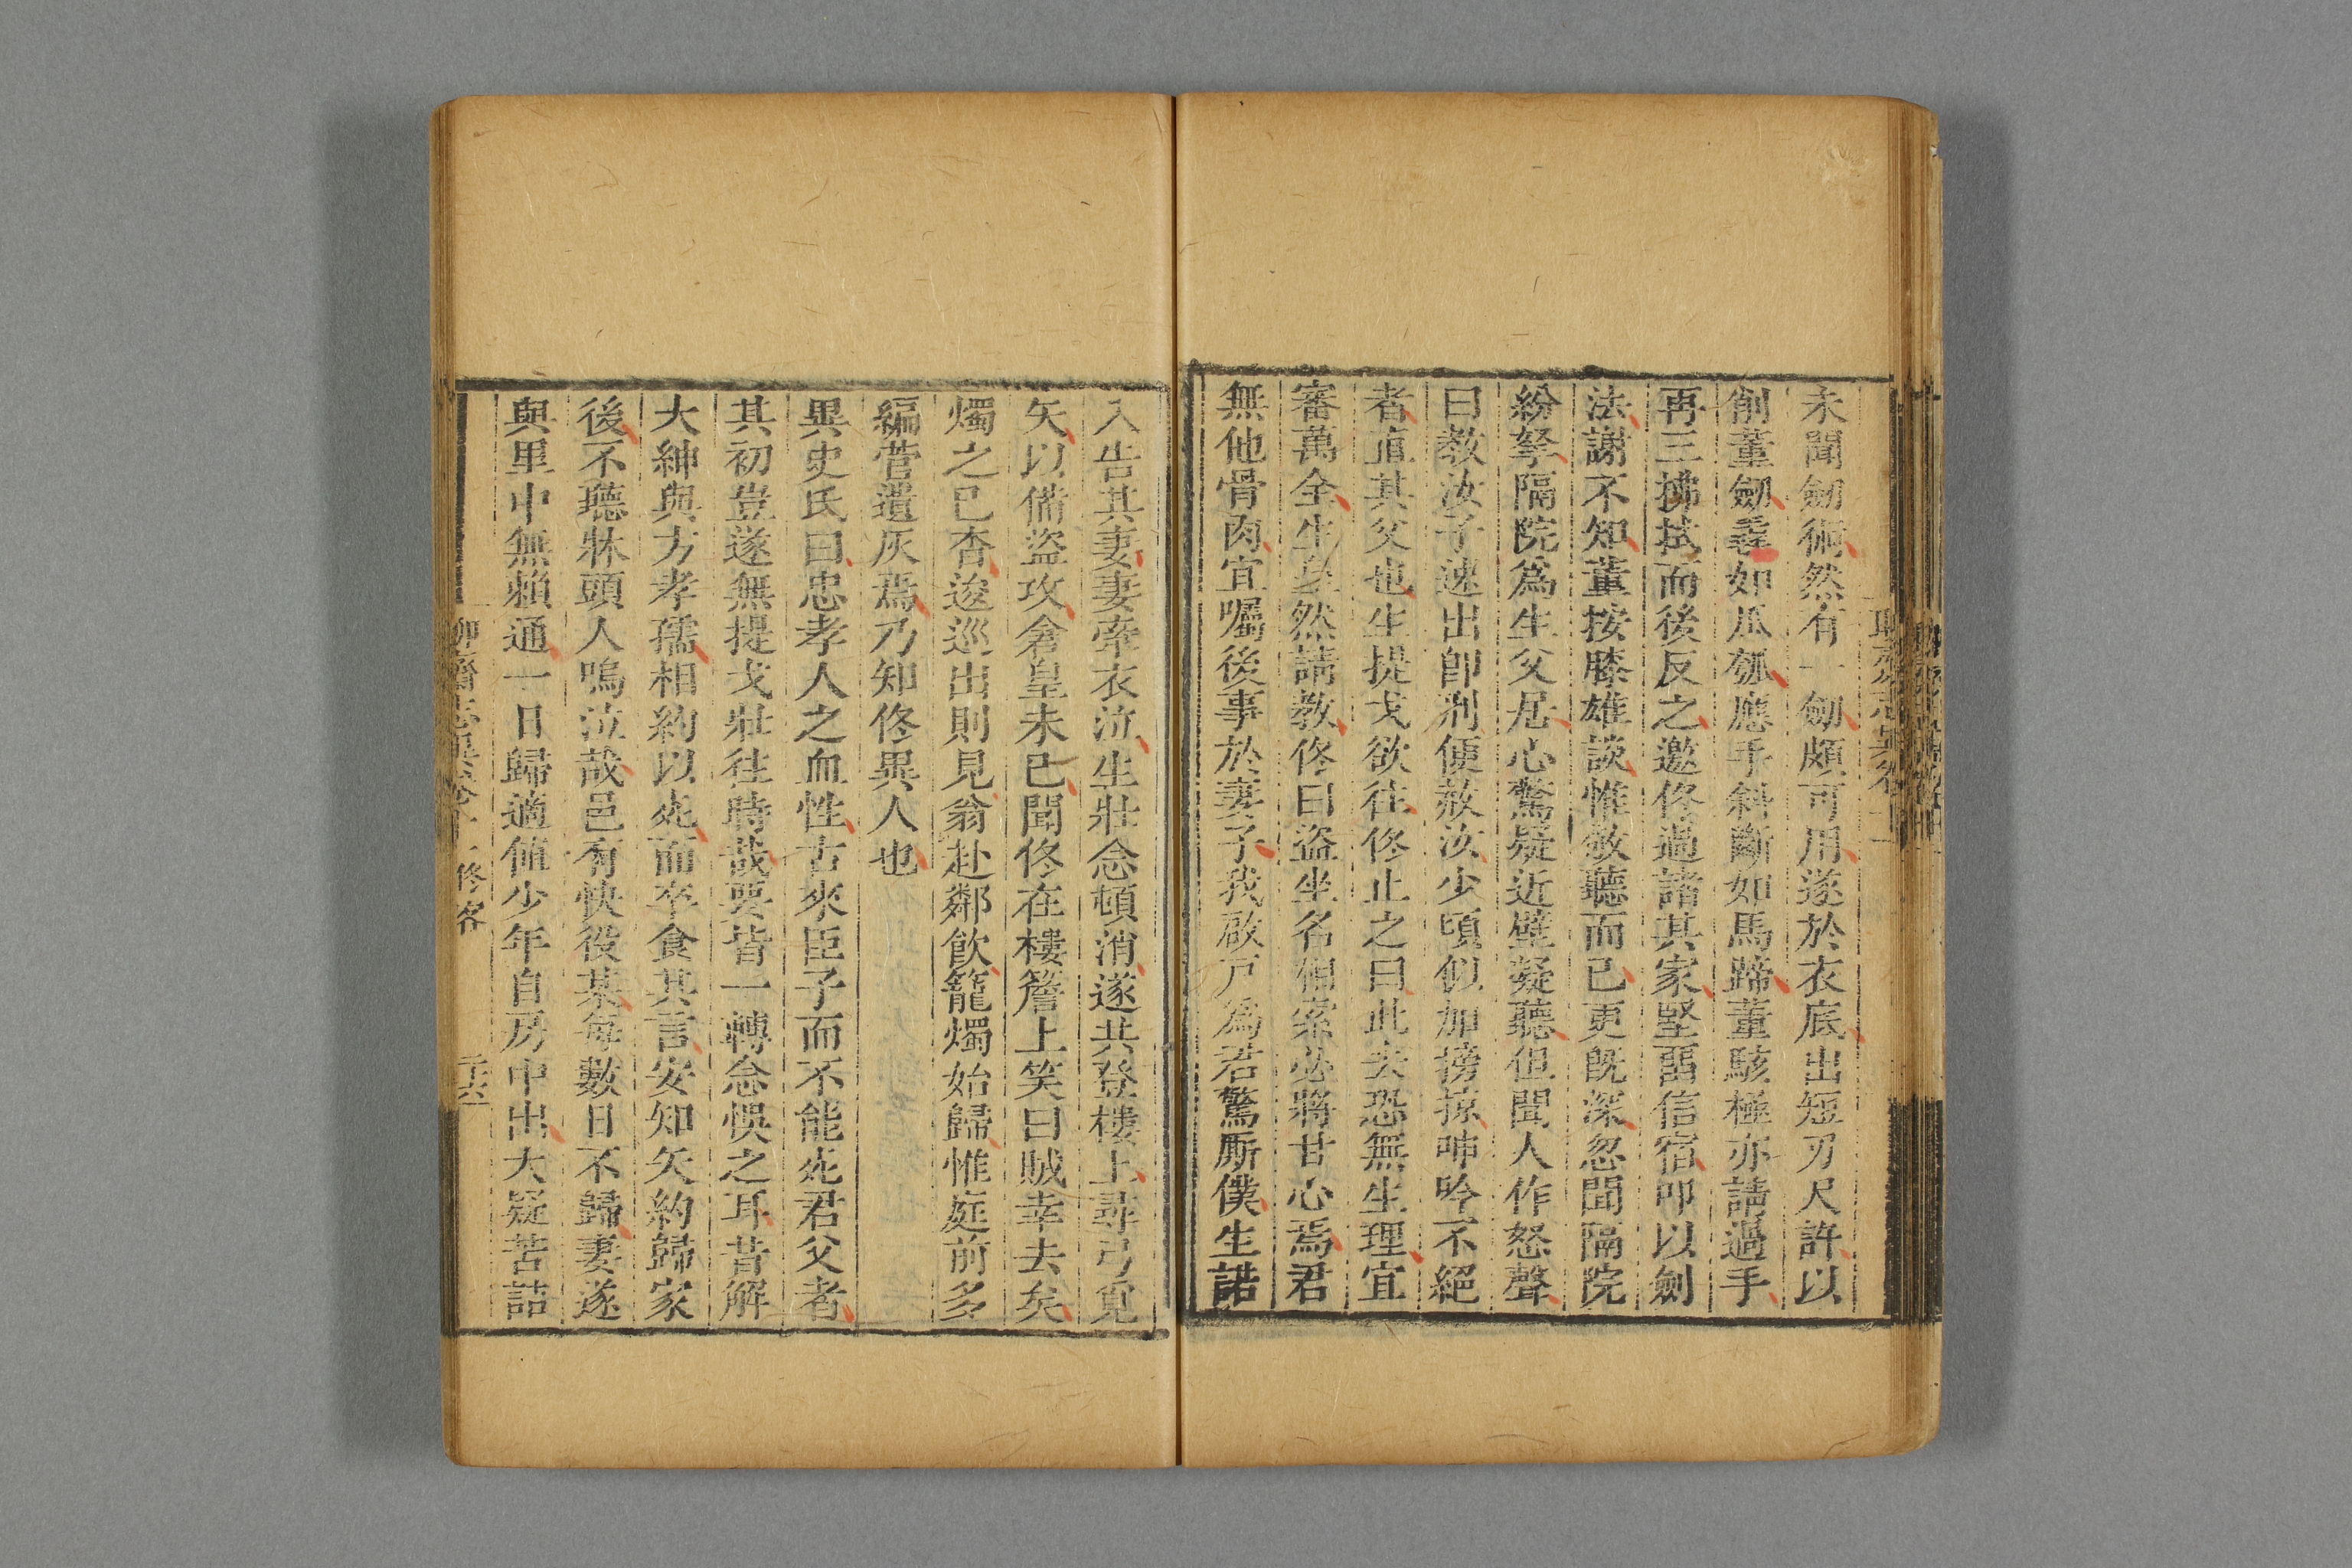 未聞劒術然有一劒頗可用遂於衣底出短刃尺許以
削董劒毳如瓜瓠應手斜斷如馬蹄董駭極亦請過手
再三拂拭而後反之邀佟過諸其家堅畱信宿叩以劍
法謝不知董按膝雄談惟敬聽而已更旣深忽聞隔院
紛拏隔院爲生父居心驚疑近壁凝聽但聞人作怒聲
曰教汝子速出卽刑便赦汝少頃似加搒掠呻吟不絕
者眞其父也生提戈欲往佟止之曰此去恐無生理宜
審萬全生皇然請教佟曰盜坐名相索必將甘心焉君
無他骨肉宜囑後事於妻子我啟戸爲君驚厮僕生諾
入告其妻妻牽衣泣生壯念頓消遂共登樓上尋弓覓
矢以備盜攻倉皇未已聞佟在樓簷上笑曰賊幸去矣
燭之已杳逡巡出則見翁赴鄰飲籠燭始歸惟庭前多
編菅遺灰焉乃知佟異人也
異史氏曰忠孝人之血性古來臣子而不能死君父者
其初豈遂無提戈壯往時哉要皆一轉念悞之耳昔解
大紳與方孝孺相約以死而卒食其言安知矢約歸家
後不聽牀頭人嗚泣哉邑有快役某每數日不歸妻遂
與里中無賴通一日歸適値少年自房中出大疑苦詰
聊齋志異卷十一 佟客 二十六